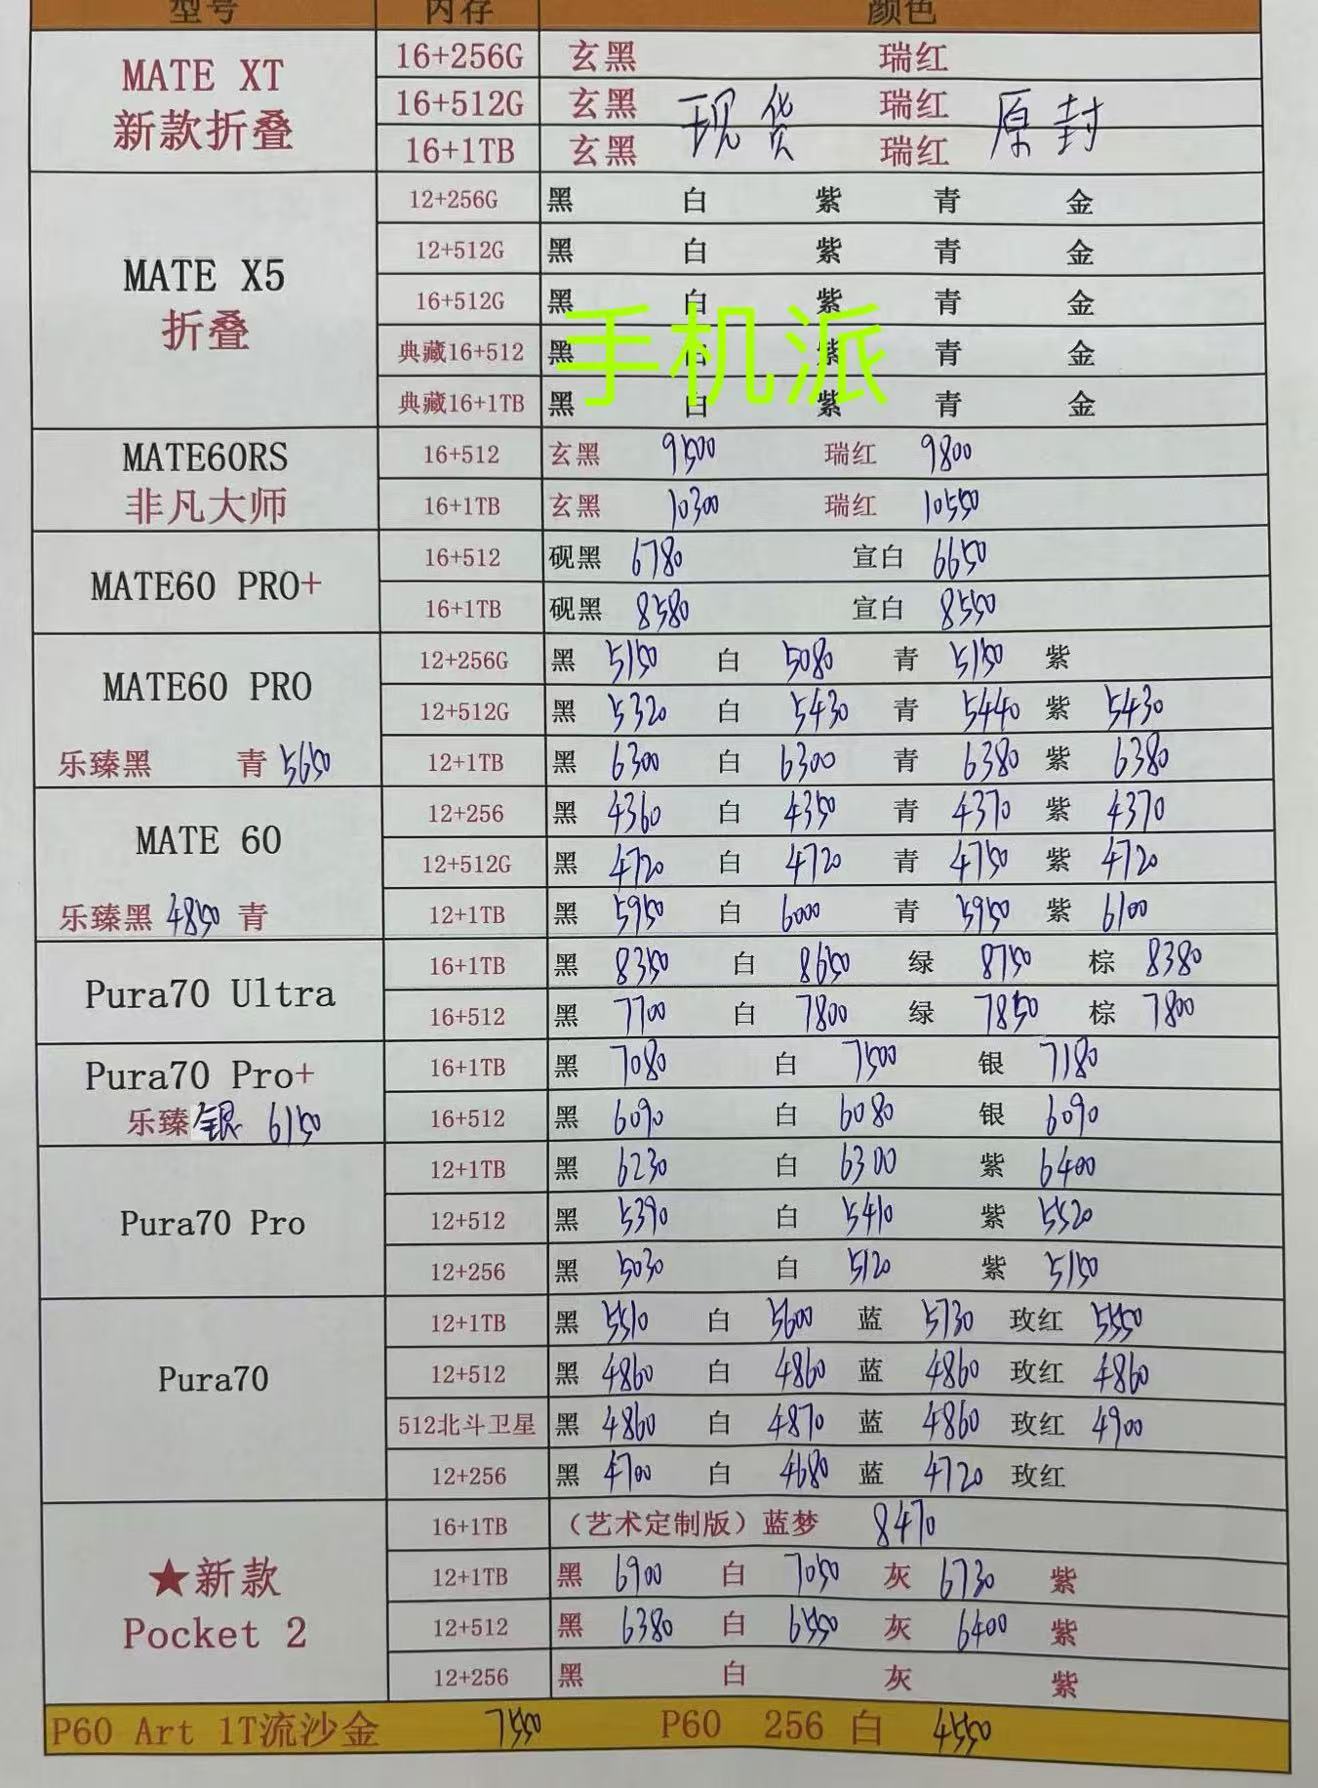 型号 内存 颜色
MATE XT 新款折叠
16+256G 玄黑 瑞红
16+512G 玄黑 现货 瑞红 原封
16+1TB 玄黑 瑞红
MATE X5 折叠
12+256G 黑 白 紫 青 金
12+512G 黑 白 紫 青 金
16+512G 黑 白 紫 青 金
手机派
典藏16+512 黑 白 紫 青 金
典藏16+1TB 黑 白 紫 青 金
MATE60RS 非凡大师
16+512 玄黑 9500 瑞红 9800
16+1TB 玄黑 10300 瑞红 10550
MATE60 PRO+
16+512 砚黑 6780 宣白 6650
16+1TB 砚黑 8580 宣白 8550
MATE60 PRO
12+256G 黑 5150 白 5080 青 5150 紫
12+512G 黑 5320 白 5430 青 5440 紫 5430
乐臻黑 青 5650
12+1TB 黑 6300 白 6300 青 6380 紫 6380
MATE 60
12+256 黑 4360 白 4350 青 4370 紫 4370
12+512G 黑 4720 白 4720 青 4750 紫 4720
乐臻黑 4850 青
12+1TB 黑 5950 白 6000 青 5950 紫 6100
Pura70 Ultra
16+1TB 黑 8350 白 8650 绿 8750 棕 8380
16+512 黑 7700 白 7800 绿 7850 棕 7800
Pura70 Pro+
16+1TB 黑 7080 白 7500 银 7180
乐臻银 6150
16+512 黑 6090 白 6080 银 6090
Pura70 Pro
12+1TB 黑 6230 白 6300 紫 6400
12+512 黑 5390 白 5410 紫 5520
12+256 黑 5030 白 5120 紫 5150
Pura70
12+1TB 黑 5510 白 5600 蓝 5730 玫红 5550
12+512 黑 4860 白 4860 蓝 4860 玫红 4860
512北斗卫星 黑 4860 白 4870 蓝 4860 玫红 4900
12+256 黑 4700 白 4680 蓝 4720 玫红
★新款 Pocket 2
16+1TB （艺术定制版）蓝梦 8470
12+1TB 黑 6900 白 7050 灰 6730 紫
12+512 黑 6380 白 6550 灰 6400 紫
12+256 黑 白 灰 紫
P60 Art 1T流沙金 7550 P60 256 白 4550